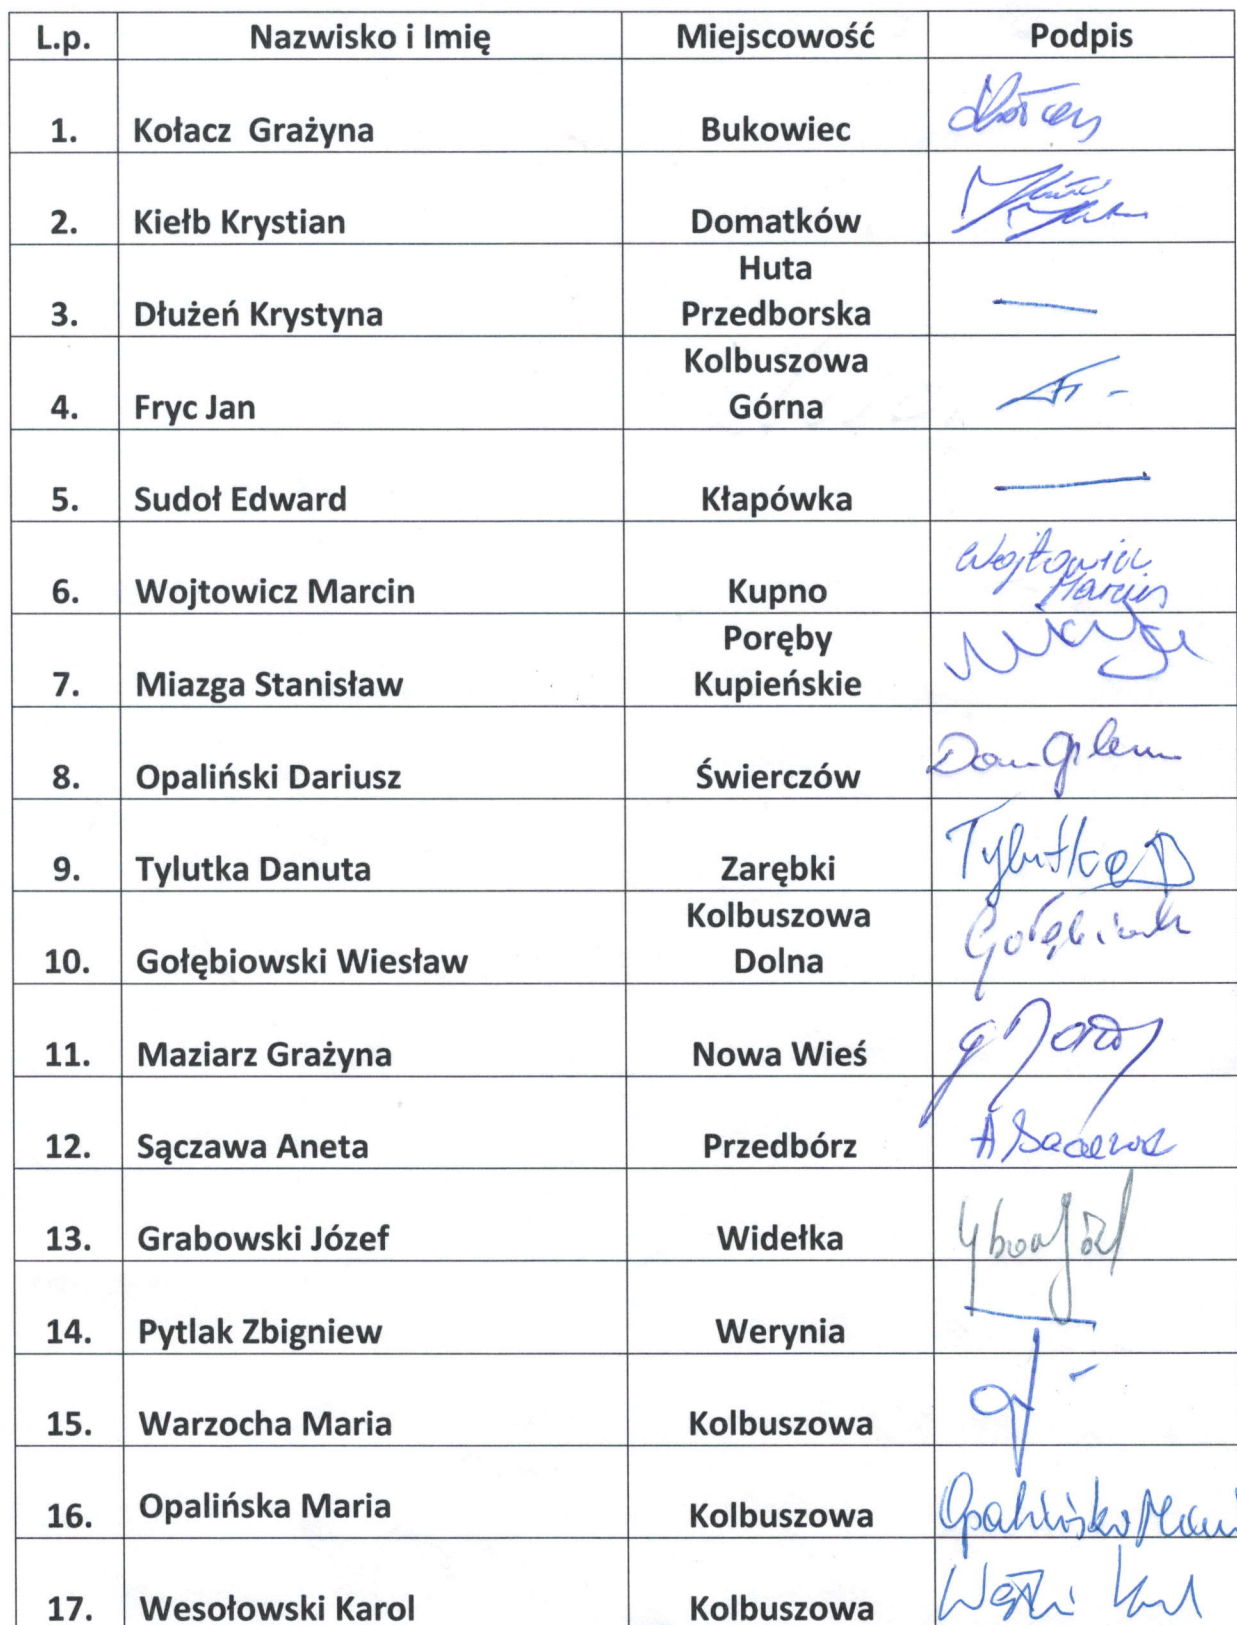 L.p. Nazwisko i Imię Miejscowość Podpis
1. Kołacz Grażyna Bukowiec
2. Kiełb Krystian Domatków
3. Dłużeń Krystyna Huta Przedborska —
4. Fryc Jan Kolbuszowa Górna
5. Sudoł Edward Kłapówka —
6. Wojtowicz Marcin Kupno Wojtowicz Marcin
7. Miazga Stanisław Poręby Kupieńskie
8. Opaliński Dariusz Świerczów
9. Tylutka Danuta Zarębki Tylutka D
10. Gołębiowski Wiesław Kolbuszowa Dolna
11. Maziarz Grażyna Nowa Wieś
12. Sączawa Aneta Przedbórz
13. Grabowski Józef Widełka
14. Pytlak Zbigniew Werynia —
15. Warzocha Maria Kolbuszowa
16. Opalińska Maria Kolbuszowa Opalińska Maria
17. Wesołowski Karol Kolbuszowa